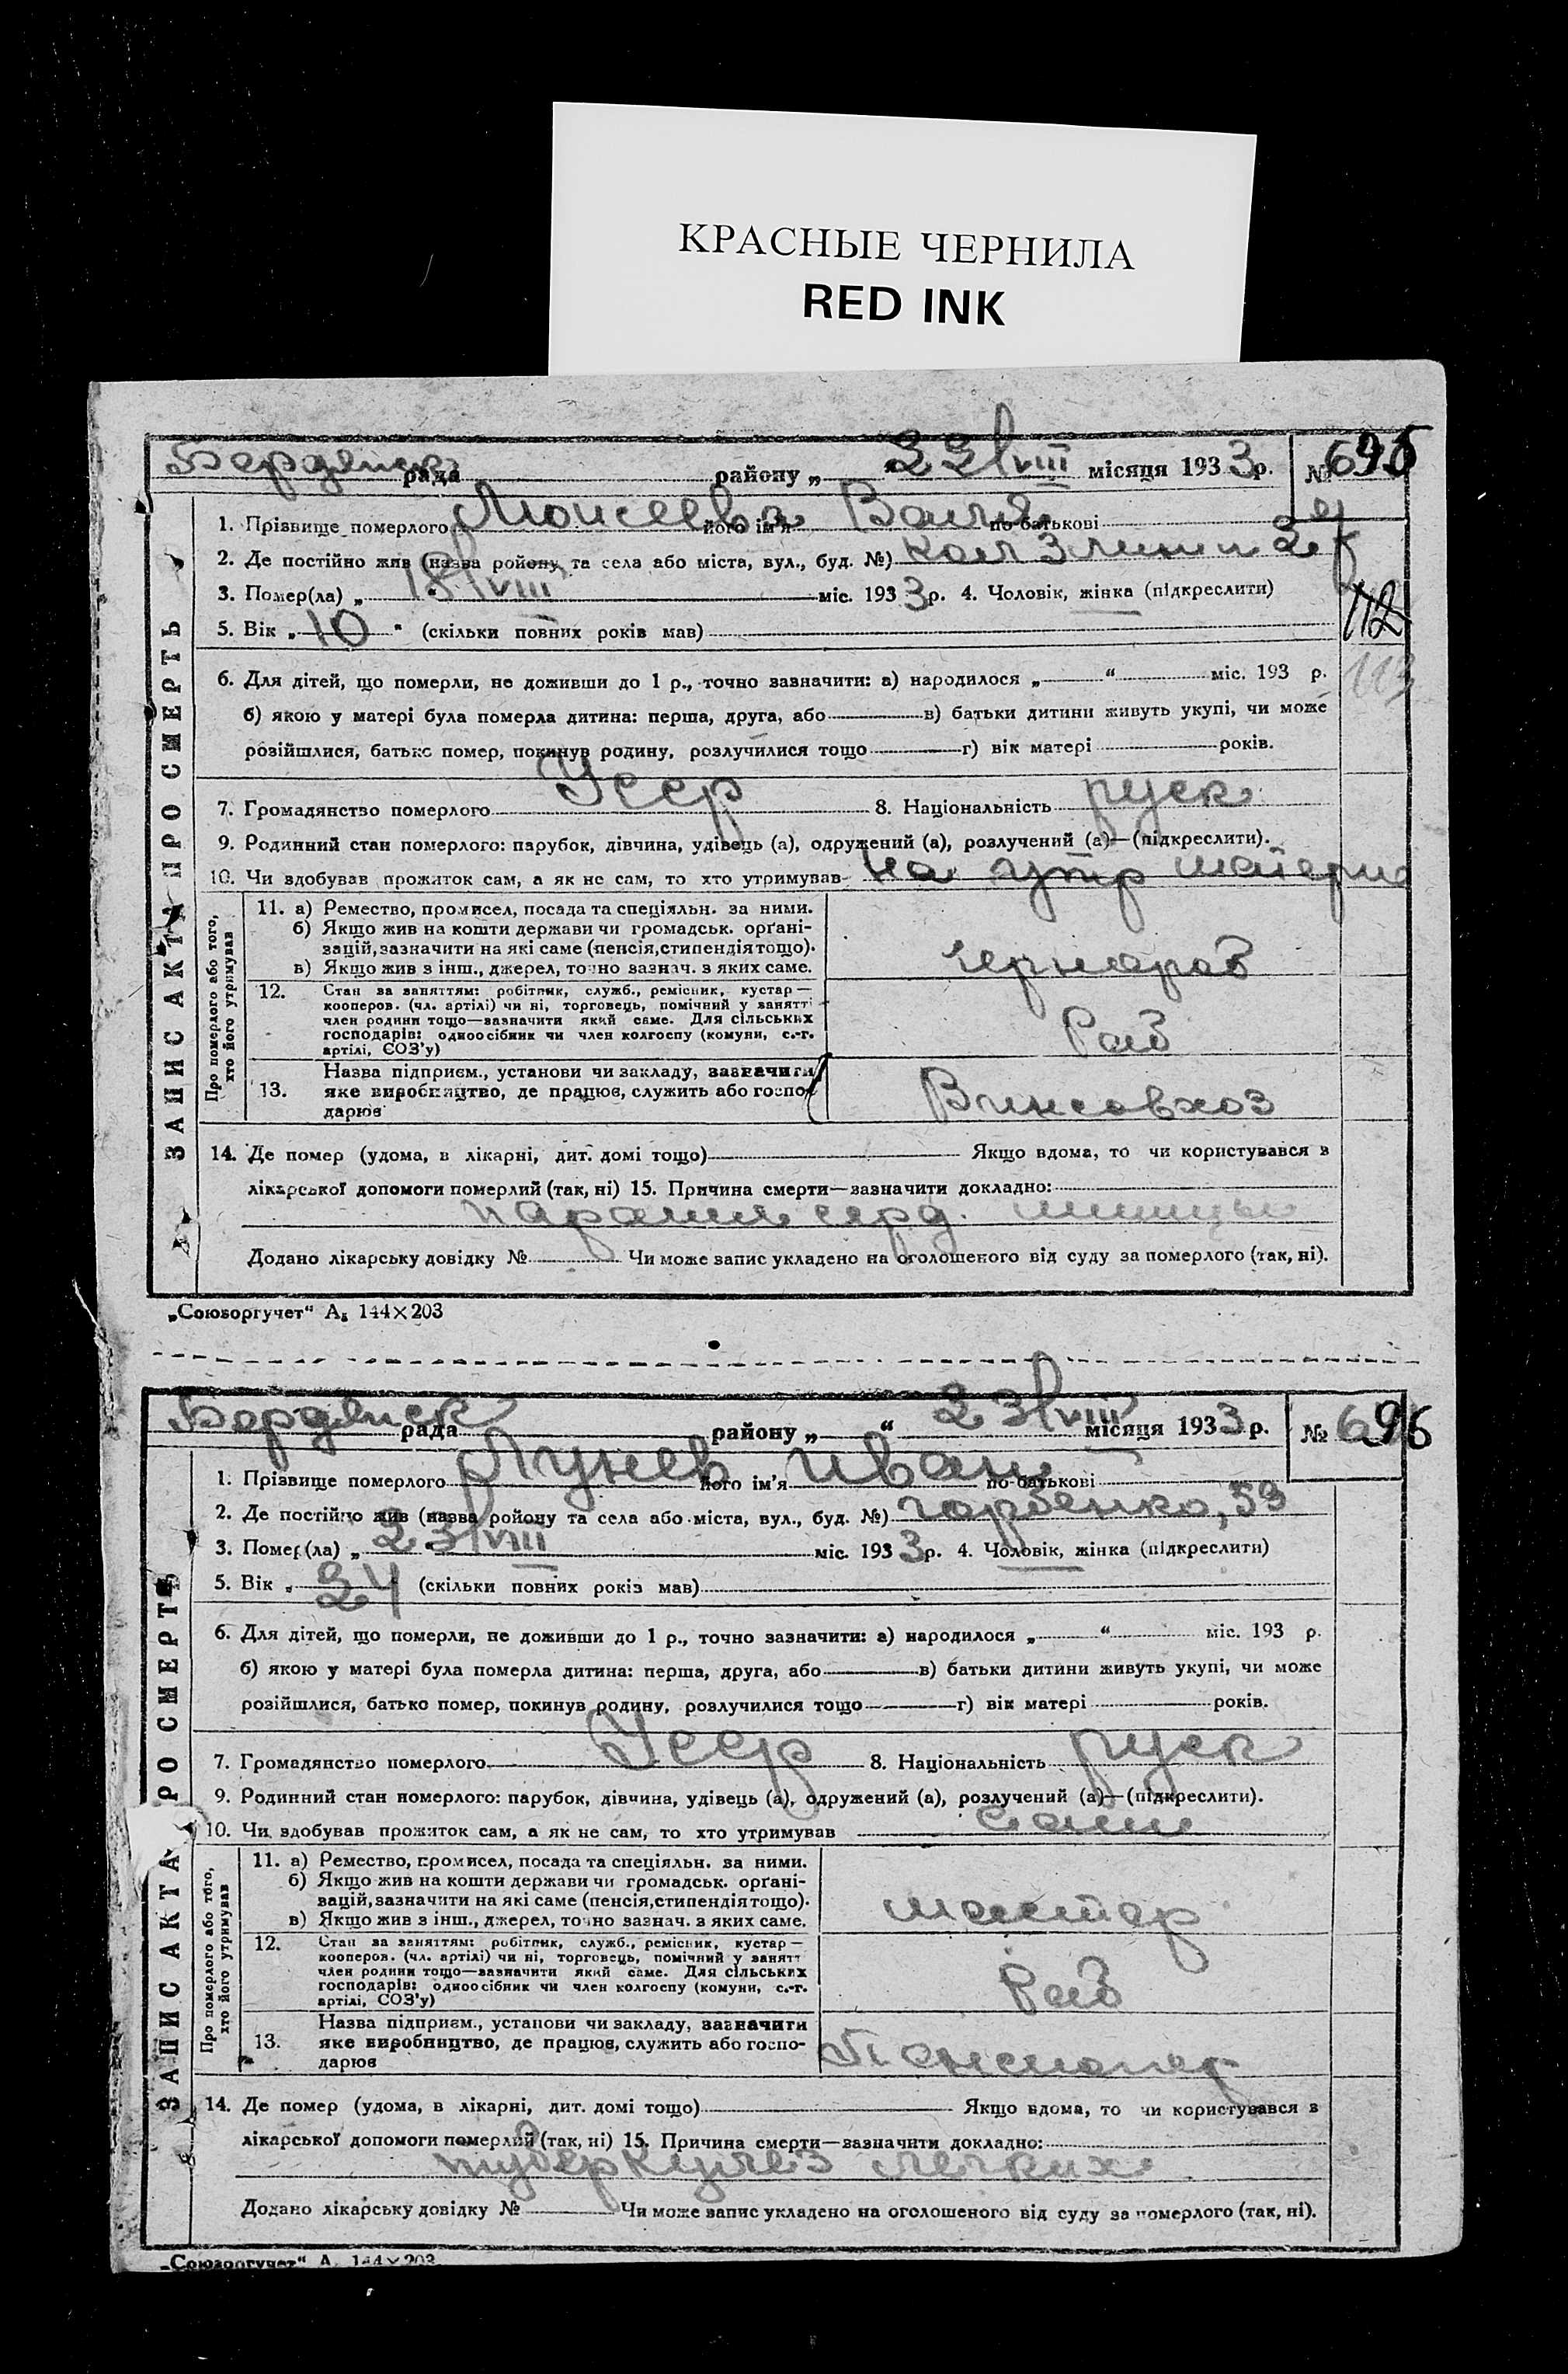 КРАСНЫЕ ЧЕРНИЛА
RED INK
Бердянск рада району „ 23/VIII місяця 1933 р. № 695
1. Прізвище померлого Моисеева його ім'я Валя по батькові
2. Де постійно жив (назва району та села або міста, вул., буд. №)
3. Помер(ла) „ 18/VIII міс. 1933 р. 4. Чоловік, жінка (підкреслити)
112
5. Вік „ 10 " (скільки повних років мав)
113
6. Для дітей, що померли, не доживши до 1 р., точно зазначити: а) народилося „ “ міс. 193 р.
б) якою у матері була померла дитина: перша, друга, або в) батьки дитини живуть укупі, чи може
розійшлися, батько помер, покинув родину, розлучилися тощо г) вік матері років.
7. Громадянство померлого Усср 8. Національність руск
9. Родинний стан померлого: парубок, дівчина, удівець (а), одружений (а), розлучений (а)—(підкреслити).
10. Чи здобував прожиток сам, а як не сам, то хто утримував на утр матери
ЗАПИС АКТА ПРО СМЕРТЬ
Про померлого або того, хто його утримував
11. а) Ремество, промисел, посада та спеціяльн. за ними.
б) Якщо жив на кошти держави чи громадськ. орґані-
зацій, зазначити на які саме (пенсія, стипендія тощо).
в) Якщо жив з інш., джерел, точно зазнач. з яких саме.
чернораб
12. Стан за заняттям: робітник, служб., ремісник, кустар—
кооперов. (чл. артілі) чи ні, торговець, помічний у занятті
член родини тощо—зазначити який саме. Для сільських
господарів: одноосібник чи член колгоспу (комуни, с.-г.
артілі, СОЗ'у)
Раб
13. Назва підприєм., установи чи закладу, зазначити
яке виробництво, де працює, служить або госпо-
дарює
Винсовхоз
14. Де помер (удома, в лікарні, дит. домі тощо) Якщо вдома, то чи користувався з
лікарської допомоги померлий (так, ні) 15. Причина смерти—зазначити докладно:
паралич серд. мышцы
Додано лікарську довідку № Чи може запис укладено на оголошеного від суду за померлого (так, ні).
„Союзоргучет“ А₅ 144×203
Бердянск рада району „ “ 23/VIII місяця 1933 р. № 696
1. Прізвище померлого Лунев його ім'я Иван по батькові
2. Де постійно жив (назва району та села або міста, вул., буд. №) Горбенко, 53
3. Помер(ла) „ 23/VIII міс. 1933 р. 4. Чоловік, жінка (підкреслити)
5. Вік „ 34 (скільки повних років мав)
6. Для дітей, що померли, не доживши до 1 р., точно зазначити: а) народилося „ “ міс. 193 р.
б) якою у матері була померла дитина: перша, друга, або в) батьки дитини живуть укупі, чи може
розійшлися, батько помер, покинув родину, розлучилися тощо г) вік матері років.
7. Громадянство померлого Усср 8. Національність руск
9. Родинний стан померлого: парубок, дівчина, удівець (а), одружений (а), розлучений (а)—(підкреслити).
10. Чи здобував прожиток сам, а як не сам, то хто утримував сам
ЗАПИС АКТА ПРО СМЕРТЬ
Про померлого або того, хто його утримував
11. а) Ремество, промисел, посада та спеціяльн. за ними.
б) Якщо жив на кошти держави чи громадськ. орґані-
зацій, зазначити на які саме (пенсія, стипендія тощо).
в) Якщо жив з інш., джерел, точно зазнач. з яких саме.
мастер
12. Стан за заняттям: робітник, служб., ремісник, кустар—
кооперов. (чл. артілі) чи ні, торговець, помічний у занятт
член родини тощо—зазначити який саме. Для сільських
господарів: одноосібник чи член колгоспу (комуни, с.-г.
артілі, СОЗ'у)
Раб
13. Назва підприєм., установи чи закладу, зазначити
яке виробництво, де працює, служить або госпо-
дарює
Пенсионер
14. Де помер (удома, в лікарні, дит. домі тощо) Якщо вдома, то чи користувався з
лікарської допомоги померлий (так, ні) 15. Причина смерти—зазначити докладно:
туберкулез легких
Додано лікарську довідку № Чи може запис укладено на оголошеного від суду за померлого (так, ні).
„Союзоргучет“ А₅ 144×203